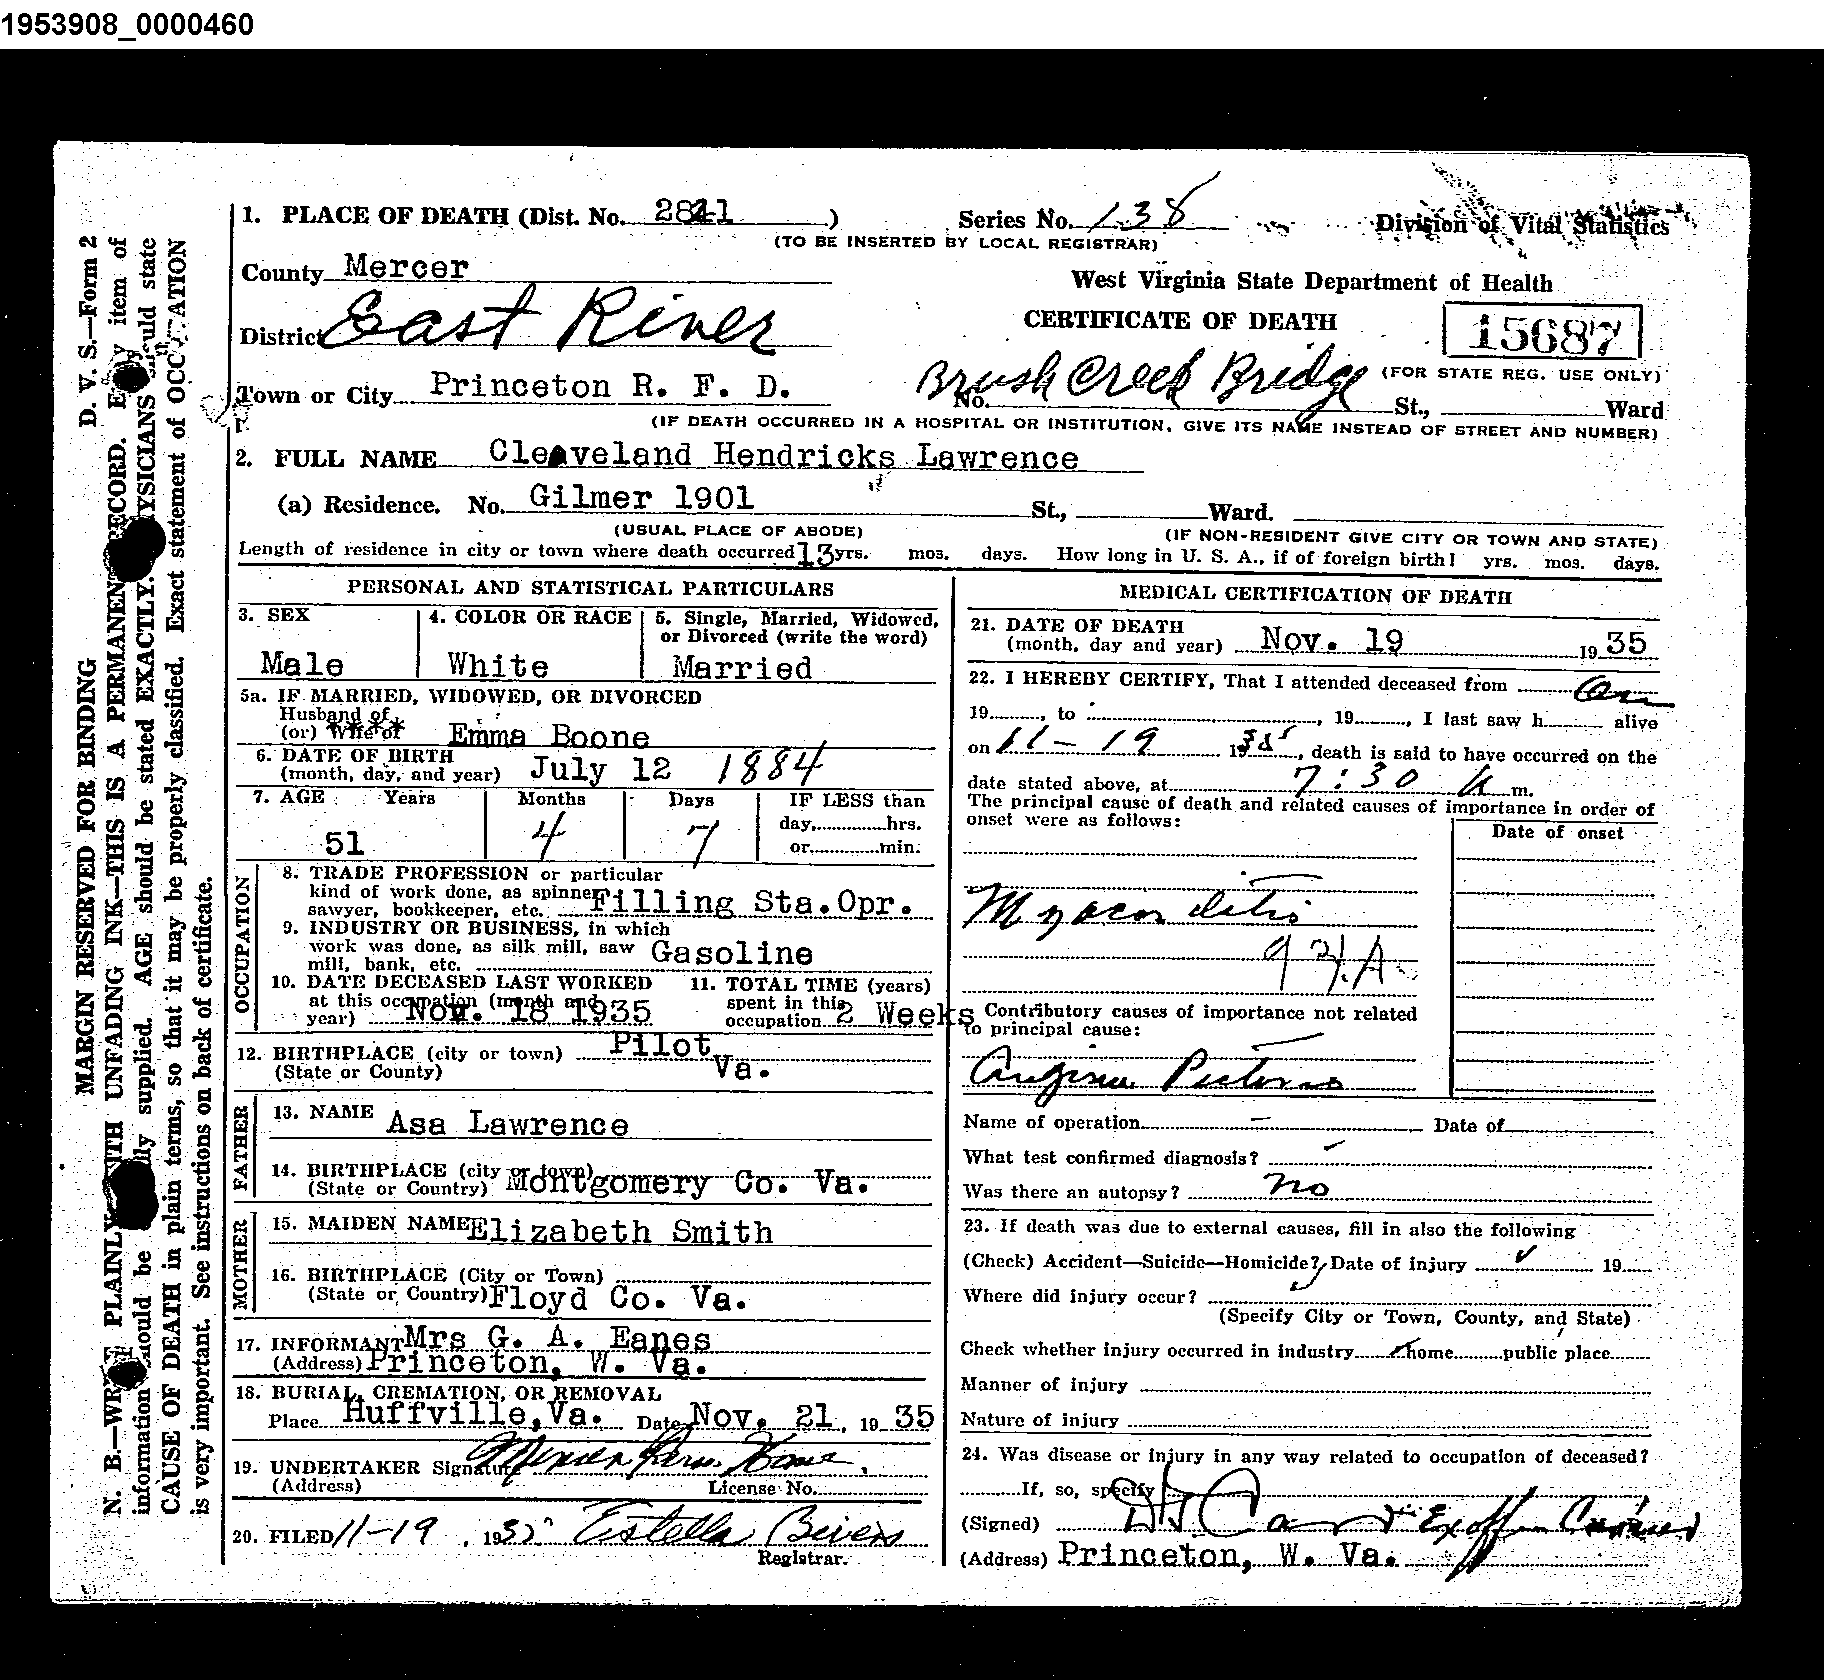 1953908_0000460
1. PLACE OF DEATH (Dist. No. 2841 ) Series No. 138 Division of Vital Statistics
(TO BE INSERTED BY LOCAL REGISTRAR)
County Mercer West Virginia State Department of Health
District East River CERTIFICATE OF DEATH 15687
Town or City Princeton R. F. D. Brush Creek Bridge (FOR STATE REG. USE ONLY)
No. St., Ward
(IF DEATH OCCURRED IN A HOSPITAL OR INSTITUTION, GIVE ITS NAME INSTEAD OF STREET AND NUMBER)
2. FULL NAME Cleaveland Hendricks Lawrence
(a) Residence. No. Gilmer 1901 St., Ward.
(USUAL PLACE OF ABODE) (IF NON-RESIDENT GIVE CITY OR TOWN AND STATE)
Length of residence in city or town where death occurred 13 yrs. mos. days. How long in U. S. A., if of foreign birth? yrs. mos. days.
PERSONAL AND STATISTICAL PARTICULARS
3. SEX 4. COLOR OR RACE 5. Single, Married, Widowed,
or Divorced (write the word)
Male White Married
5a. IF MARRIED, WIDOWED, OR DIVORCED
Husband of
(or) Wife of Emma Boone
6. DATE OF BIRTH
(month, day, and year) July 12 1884
7. AGE Years Months Days IF LESS than
day, hrs.
51 4 7 or min.
OCCUPATION
8. TRADE PROFESSION or particular
kind of work done, as spinner
sawyer, bookkeeper, etc. Filling Sta. Opr.
9. INDUSTRY OR BUSINESS, in which
work was done, as silk mill, saw
mill, bank, etc. Gasoline
10. DATE DECEASED LAST WORKED
at this occupation (month and
year) Nov. 18 1935
11. TOTAL TIME (years)
spent in this
occupation 2 Weeks
12. BIRTHPLACE (city or town) Pilot
(State or County) Va.
FATHER
13. NAME Asa Lawrence
14. BIRTHPLACE (city or town)
(State or Country) Montgomery Co. Va.
MOTHER
15. MAIDEN NAME Elizabeth Smith
16. BIRTHPLACE (City or Town)
(State or Country) Floyd Co. Va.
17. INFORMANT Mrs G. A. Eanes
(Address) Princeton, W. Va.
18. BURIAL, CREMATION, OR REMOVAL
Place Huffville, Va. Date Nov. 21, 19 35
19. UNDERTAKER Signature Mercer Home
(Address) License No.
20. FILED 11-19, 1935 Estella Bivens
Registrar.
MEDICAL CERTIFICATION OF DEATH
21. DATE OF DEATH
(month, day and year) Nov. 19 19 35
22. I HEREBY CERTIFY, That I attended deceased from
19 , to , 19 , I last saw h alive
on 11-19 1935, death is said to have occurred on the
date stated above, at 7:30 m.
The principal cause of death and related causes of importance in order of
onset were as follows:
Date of onset
Myocarditis
Contributory causes of importance not related
to principal cause:
Angina Pectoris
Name of operation — Date of
What test confirmed diagnosis?
Was there an autopsy? no
23. If death was due to external causes, fill in also the following
(Check) Accident—Suicide—Homicide? Date of injury 19
Where did injury occur?
(Specify City or Town, County, and State)
Check whether injury occurred in industry home public place
Manner of injury
Nature of injury
24. Was disease or injury in any way related to occupation of deceased?
If, so, specify
(Signed) Exoff Coroner
(Address) Princeton, W. Va.
D. V. S.—Form 2
MARGIN RESERVED FOR BINDING
N. B.—WRITE PLAINLY WITH UNFADING INK—THIS IS A PERMANENT RECORD. Every item of
information should be supplied. AGE should be stated EXACTLY. PHYSICIANS should state
CAUSE OF DEATH in plain terms, so that it may be properly classified. Exact statement of OCCUPATION
is very important. See instructions on back of certificate.